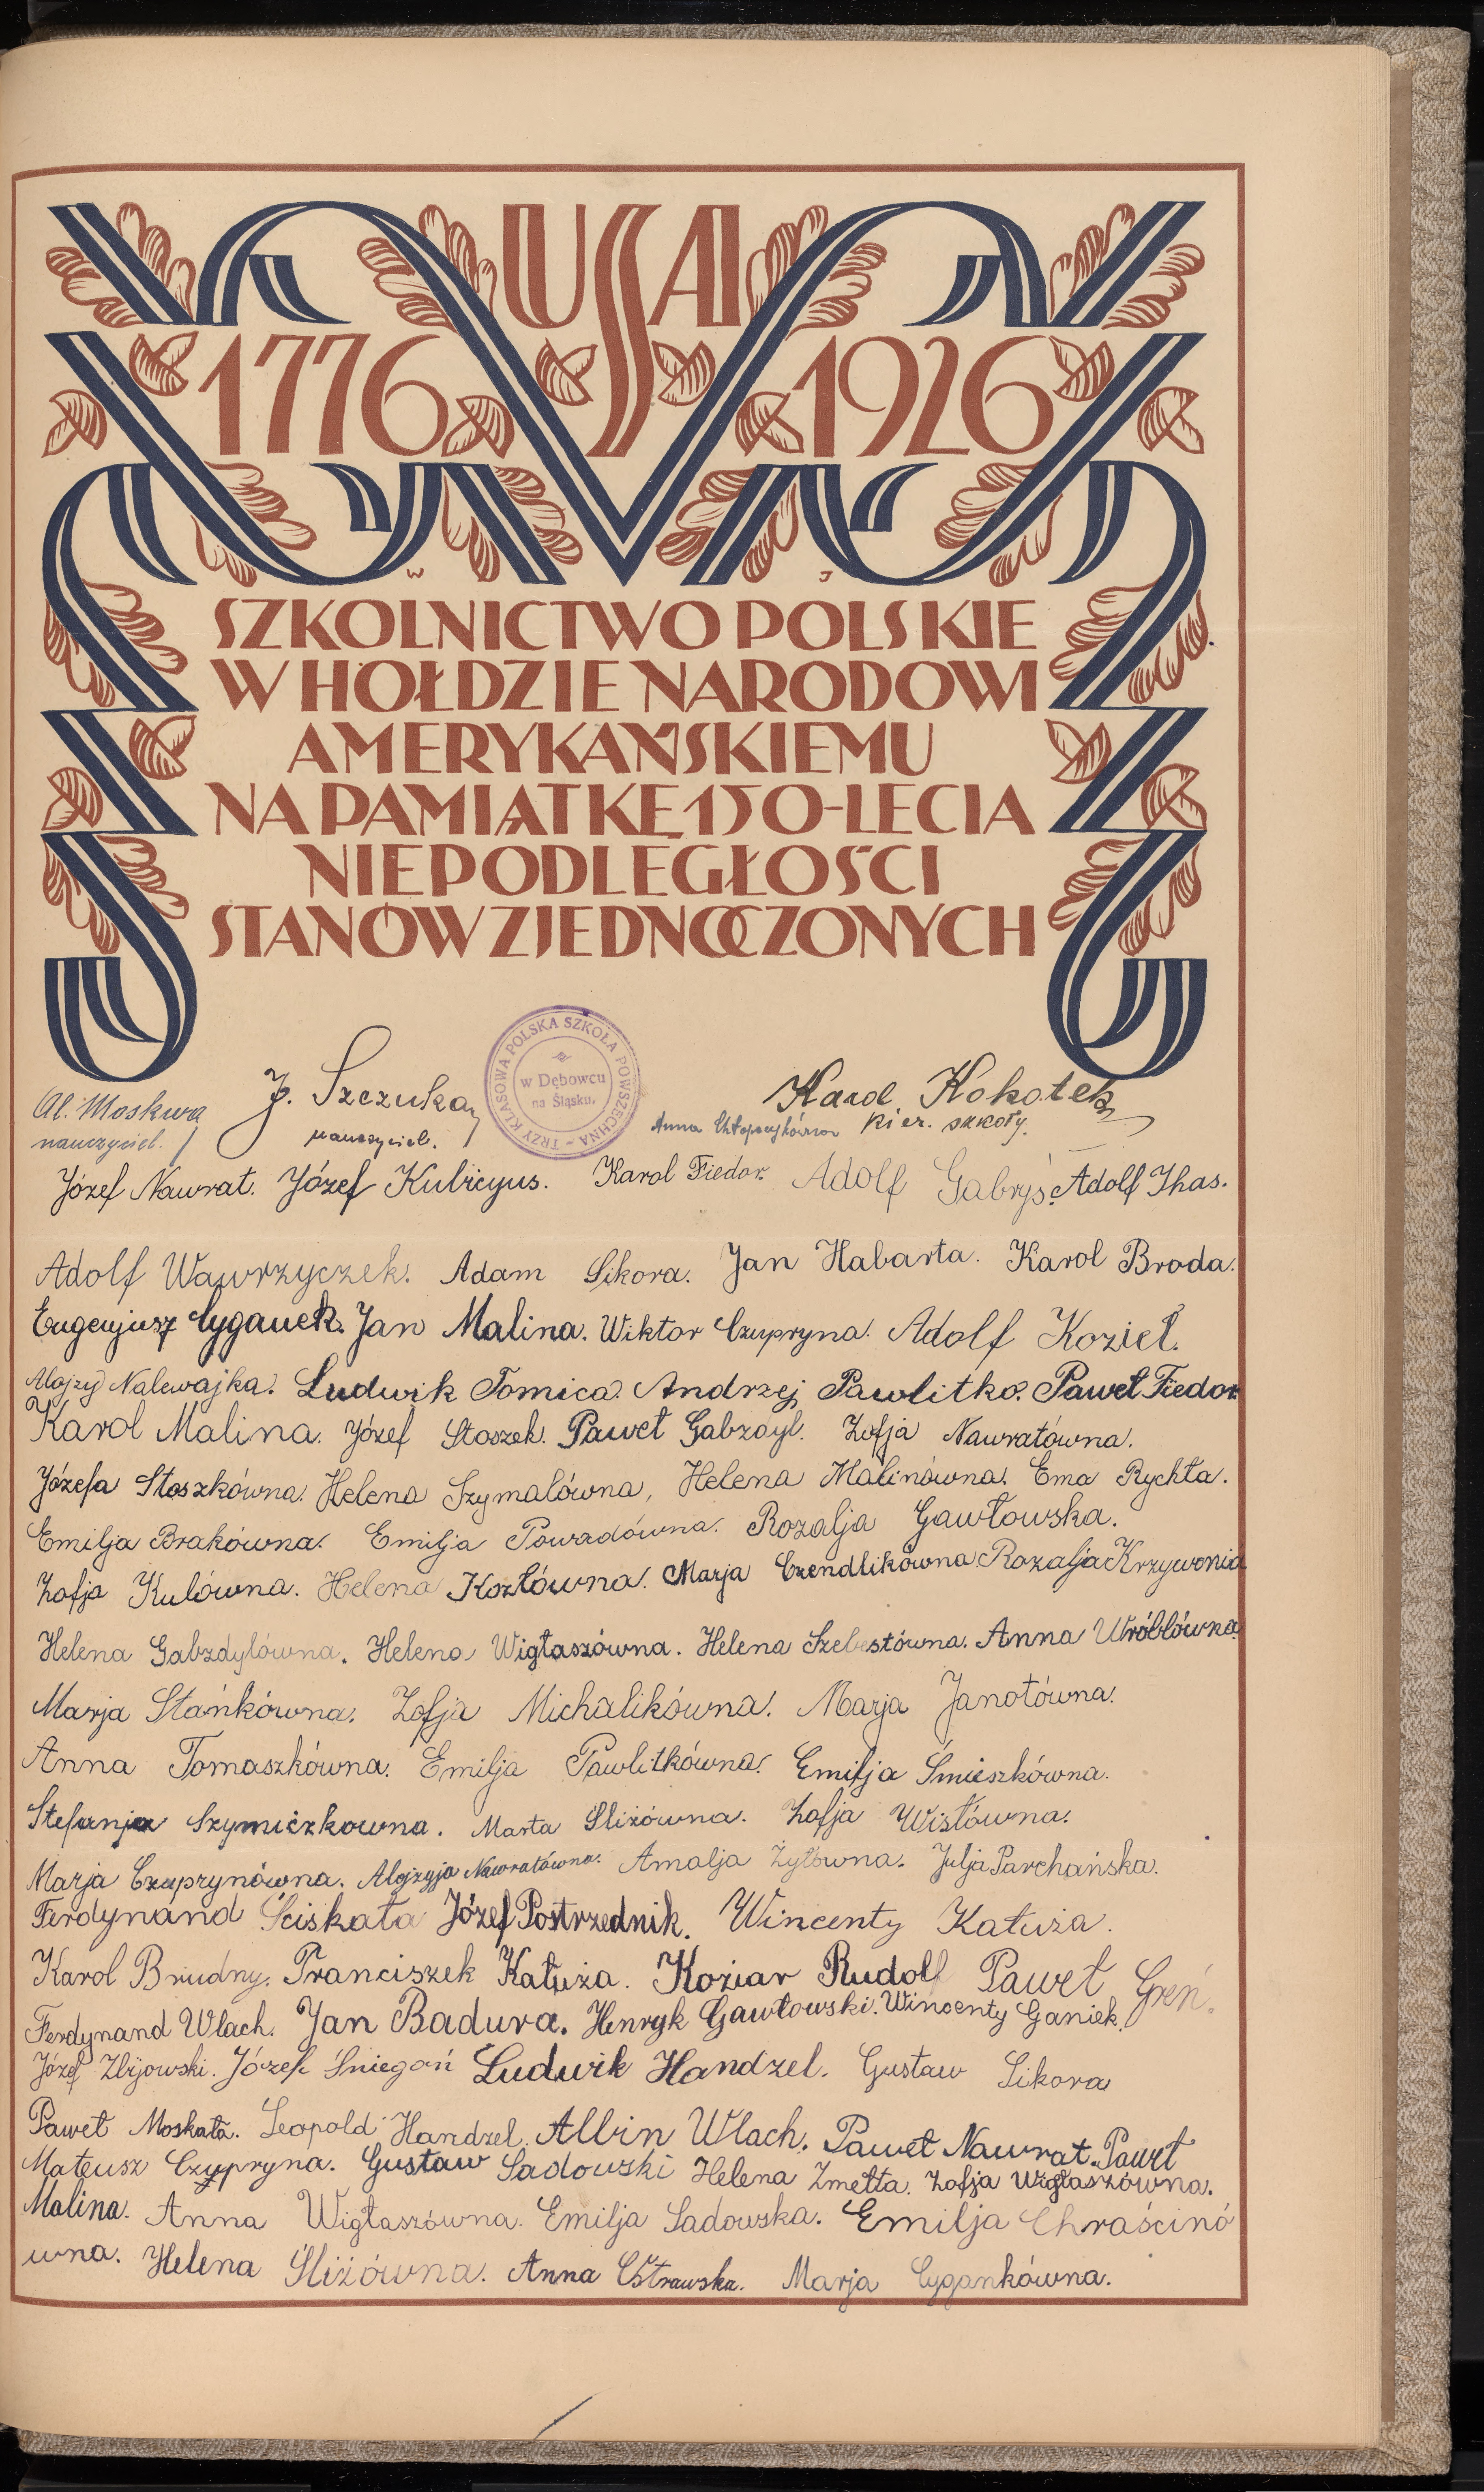 USA
1776 1926
W J
SZKOLNICTWO POLSKIE
W HOŁDZIE NARODOWI
AMERYKAŃSKIEMU
NA PAMIĄTKĘ 150-LECIA
NIEPODLEGŁOŚCI
STANÓW ZJEDNOCZONYCH
TRZY KLASOWA POLSKA SZKOŁA POWSZECHNA
w Dębowcu
na Śląsku.
Al. Moskwa J. Szczuka Karol Kokotek
nauczyciel. nauczyciel. Anna kier. szkoły.
Józef Nawrat. Józef Kubicyus. Karol Fiedor. Adolf Gabryś. Adolf Thas.
Adolf Wawrzyczek. Adam Sikora. Jan Habarta. Karol Broda.
Eugenjusz Cyganek. Jan Malina. Wiktor Czupryna. Adolf Kozieł.
Alojzy Nalewajka. Ludwik Tomica. Andrzej Pawlitko. Paweł Fiedor
Karol Malina. Józef Stoszek. Paweł Gabzdyl. Zofja Nawratówna.
Józefa Stoszkówna. Helena Szymalówna, Helena Malinówna. Ema Rychła.
Emilja Brakówna. Emilja Powadówna. Rozalja Gawłowska.
Zofja Kulówna. Helena Kozłówna. Marja Czendlikówna Rozalja Krzywonia
Helena Gabzdylówna. Helena Wigłaszówna. Helena Szebestówna. Anna Wróblówna.
Marja Stańkówna. Zofja Michalikówna. Marja Janotówna.
Anna Tomaszkówna. Emilja Pawlitkówna. Emilja Śmieszkówna.
Stefanja Szymiczkowna. Marta Śliżówna. Zofja Wisłówna.
Marja Czuprynówna. Alojzyja Nawratówna. Amalja Żyłówna. Julja Parchańska.
Ferdynand Ściskała Józef Postrzednik. Wincenty Kałuża.
Karol Brudny. Franciszek Kałuża. Koziar Rudolf Paweł Greń.
Ferdynand Wlach. Jan Badura. Henryk Gawłowski. Wincenty Ganiek.
Józef Zbijowski. Józef Śniegoń Ludwik Handzel. Gustaw Sikora
Paweł Moskała. Leopold Handzel. Albin Wlach. Paweł Nawrat. Paweł
Mateusz Czypryna. Gustaw Sadowski Helena Zmełta. Zofja Wigłaszówna.
Malina. Anna Wigłaszówna. Emilja Sadowska. Emilja Chraścinó
wna. Helena Śliżówna. Anna Ostrawska. Marja Cygankówna.